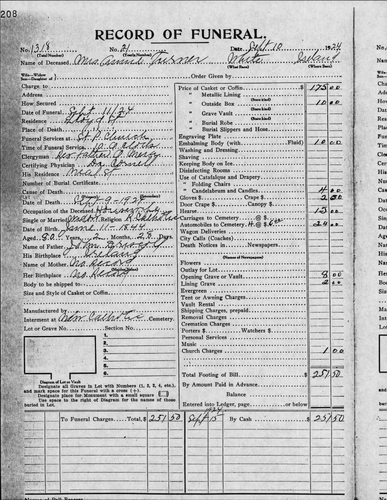 208
RECORD OF FUNERAL.
No. 1318 No. 21 Date, Sept 10 1924
(Total Number) (Yearly Number)
Name of Deceased Mrs. Annie Turner White Ireland
(What Race) (Where Born)
Wife—Widow
Son—Daughter of Order Given by
Charge to
Address
How Secured
Date of Funeral Sept 11/24
Residence
Place of Death
Funeral Services at St. P. Church
Time of Funeral Service 10. A. clock
Clergyman Rev. Father
Certifying Physician Dr.
His Residence
Number of Burial Certificate
Cause of Death
Date of Death Sept 9 - 1924
Occupation of the Deceased Housewife
Single or Married Religion Catholic
Date of Birth June 11 - 1844
Aged 80 Years 2 Months 28 Days
Name of Father John
His Birthplace Ireland
Name of Mother No Record
Her Birthplace No Record
Body to be shipped to
Size and Style of Casket or Coffin
Manufactured by
Interment at New Catholic Cemetery.
Lot or Grave No. Section No.
1
2
3
4
5
6
Diagram of Lot or Vault
Designate all Graves in Lot with Numbers (1, 2, 3, 4, etc.),
and mark space for this Funeral with a cross (+).
Designate place for Monument with a small square
Use space to right of Diagram for the names of those
buried in Lot.
Price of Casket or Coffin $ 175 00
" Metallic Lining
" Outside Box 10 00
" Grave Vault
" Burial Robe
" Burial Slippers and Hose
Engraving Plate
Embalming Body (with Fluid) 10 00
Washing and Dressing
Shaving
Keeping Body on Ice
Disinfecting Rooms
Use of Catafalque and Drapery
" Folding Chairs
" Candelabrum and Candles 4 00
Gloves $ 2 50
Door Crape $ Candles $
Hearse 15 00
Carriages to Cemetery @ $
Automobiles to Cemetery 4 @ $6.00 24 00
Wagon Deliveries
City Calls (Coaches)
Death Notices in Newspapers
(Names of Newspapers)
Flowers
Outlay for Lot
Opening Grave or Vault 8 00
Lining Grave 2 00
Evergreen
Tent or Awning Charges
Vault Rental
Shipping Charges, prepaid
Removal Charges
Cremation Charges
Porters $ Watchers $
Personal Services
Music
Church Charges 1 00
Total Footing of Bill $ 251 50
By Amount Paid in Advance
Balance
Entered into Ledger, page or below
To Funeral Charges Total, $ 251 50 Sept 15 1924 By Cash $ 251 50